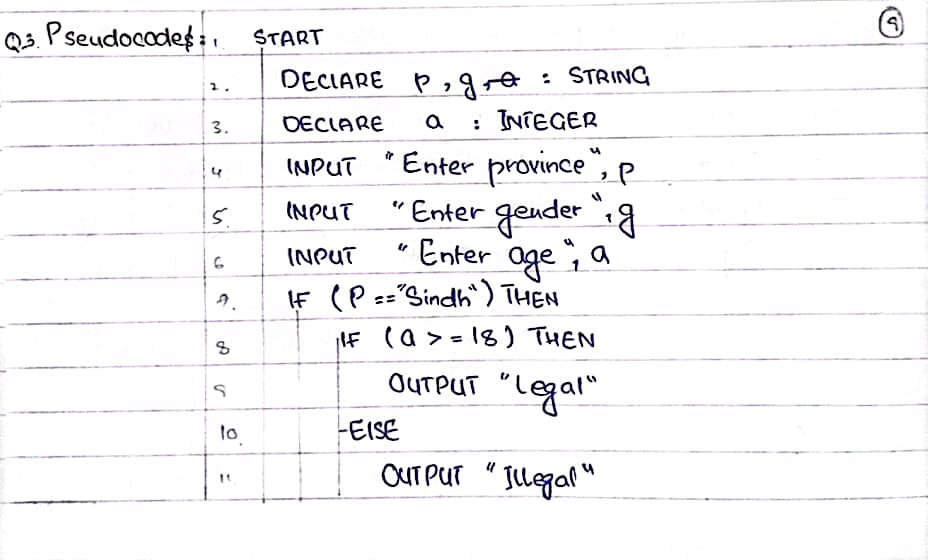 9
Q3. Pseudocodes: 1 START
2. DECLARE p, g : STRING
3. DECLARE a : INTEGER
4 INPUT "Enter province", p
5. INPUT "Enter gender", g
6 INPUT "Enter age", a
7. IF (P =="Sindh") THEN
8 IF (a >= 18) THEN
9 OUTPUT "Legal"
10. ELSE
11 OUTPUT "Illegal"